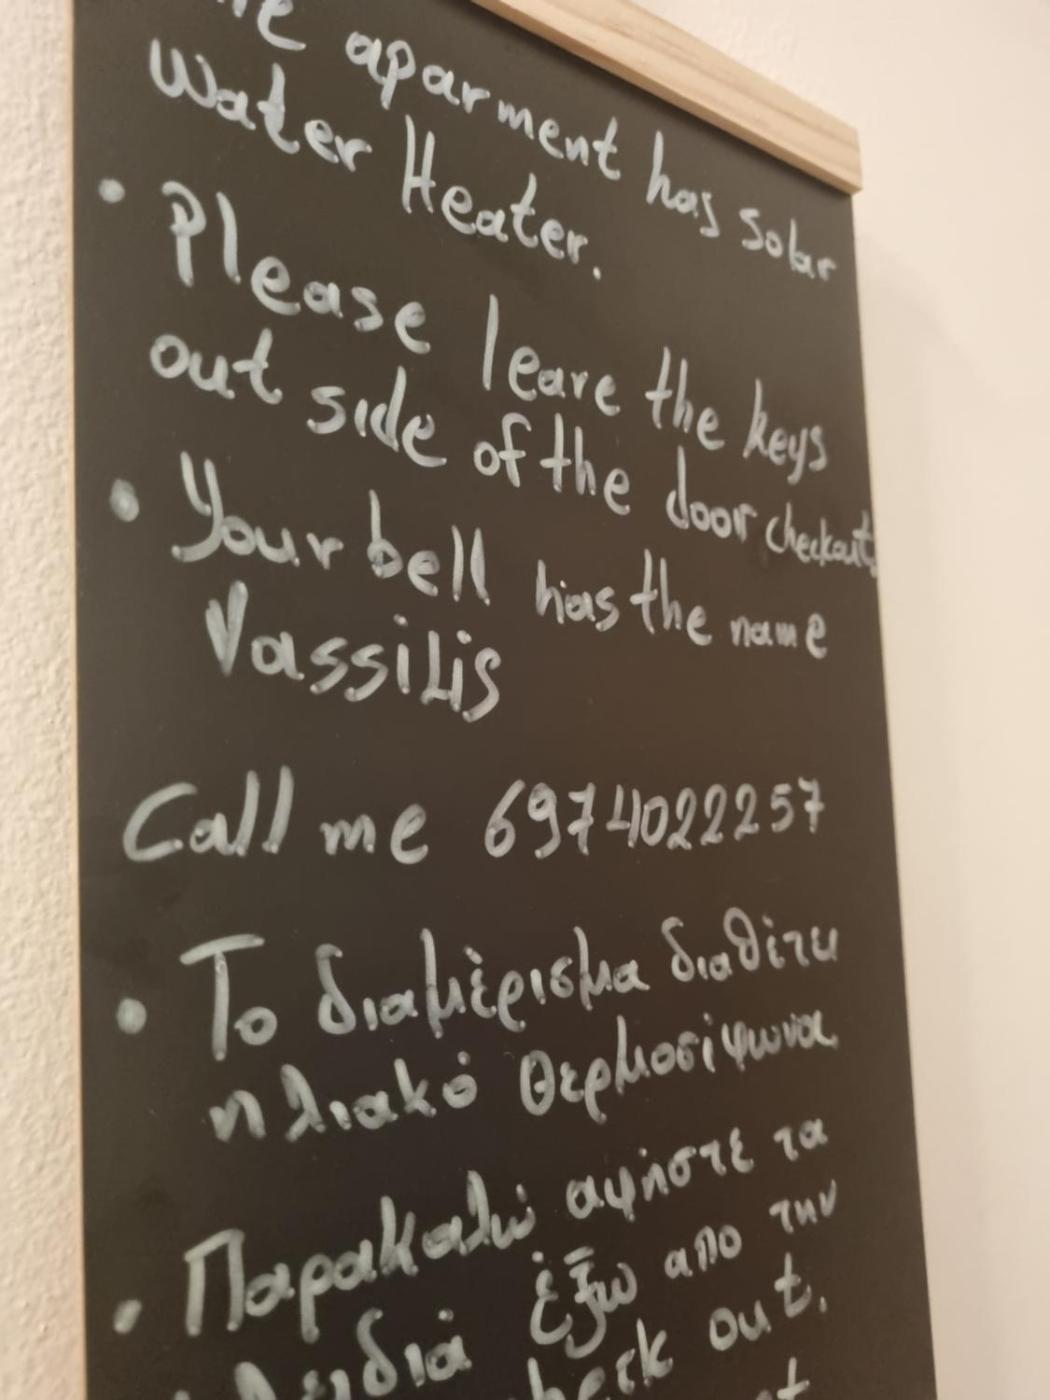 aparment has solar
Water Heater.
• Please leave the keys
out side of the door checkout
• Your bell has the name
Vassilis
Call me 6974022257
• Το διαμέρισμα διαθέτει
ηλιακό θερμοσίφωνα
• Παρακαλώ αφήστε τα
έξω απο την
out.